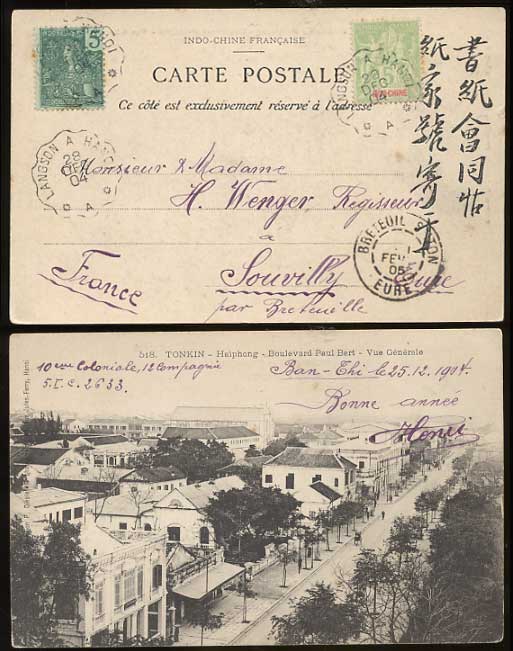 INDO-CHINE FRANÇAISE
CARTE POSTALE
Ce côté est exclusivement réservé à l'adresse
5
INDO-CHINE
LANGSON A HANOI
28
04
LANGSON A HANOI
28
書紙會同帖
紙家號寄
Monsieur & Madame
H. Wenger, Regisseur
à
Souvilly Eure
par Breteuille
France
BRETEUIL S ITON
1
FEV
05
EURE
518. TONKIN - Haiphong - Boulevard Paul Bert - Vue Générale
10eme Coloniale, 12 Compagnie
Ban-Thi le 25.12.1904.
5.I.C. 2633
Bonne année
Henri